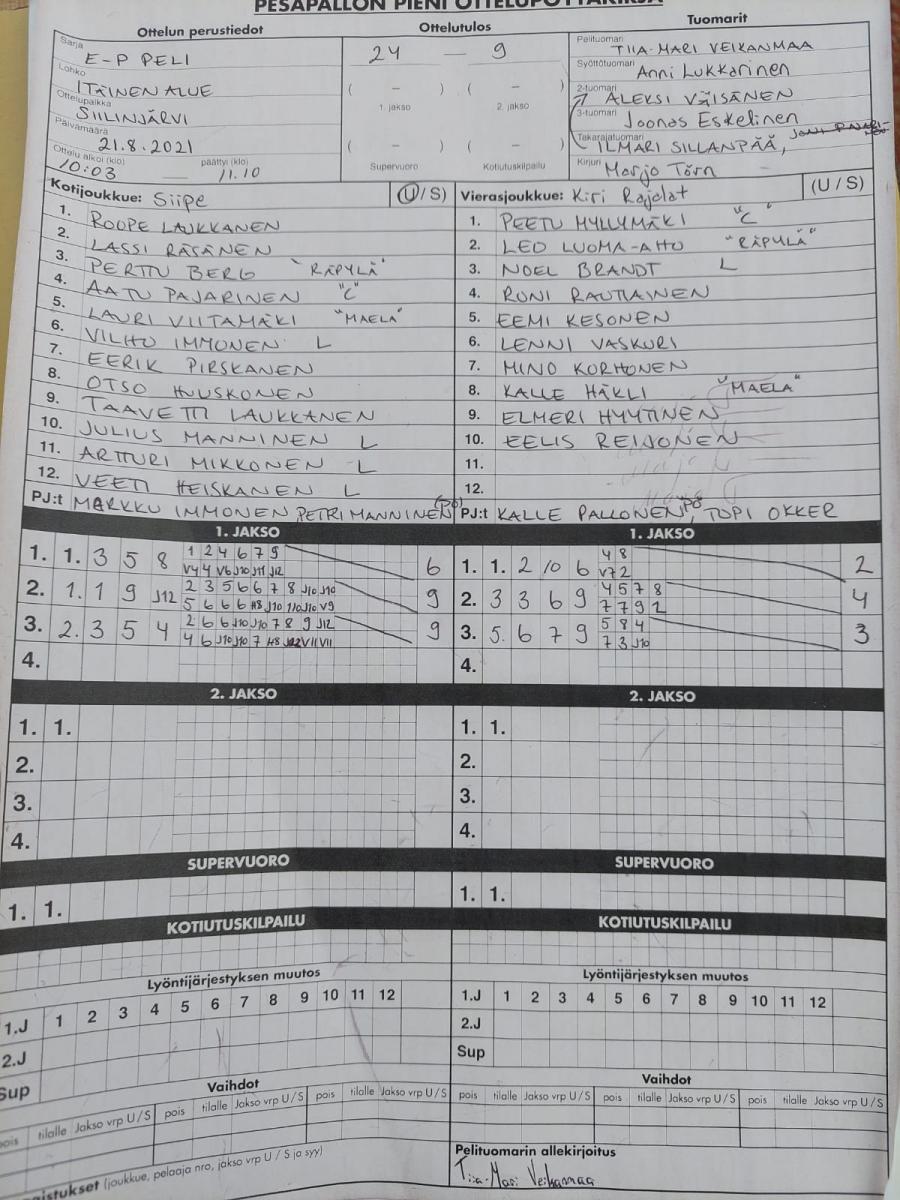 PESÄPALLON PIENI OTTELUPÖYTÄKIRJA
Ottelun perustiedot
Sarja
E-P PELI
Lohko
ITÄINEN ALUE
Ottelupaikka
SIILINJÄRVI
Päivämäärä
21.8.2021
Ottelu alkoi (klo) päättyi (klo)
10:03 — 11.10
Ottelutulos
24 — 9
( – ) ( – )
1. jakso 2. jakso
( – ) ( – )
Supervuoro Kotiutuskilpailu
Tuomarit
Pelituomari
TIIA-MARI VEIKANMAA
Syöttötuomari
Anni Lukkarinen
2-tuomari
ALEKSI VÄISÄNEN
3-tuomari
Joonas Eskelinen
Takarajatuomari
ILMARI SILLANPÄÄ,
Kirjuri
Marjo Törn
Kotijoukkue: Siipe (U/S)
1. ROOPE LAUKKANEN
2. LASSI RÄSÄNEN
3. PERTTU BERG "RÄPYLÄ"
4. AATU PAJARINEN "C"
5. LAURI VIITAMÄKI "MAELA"
6. VILHO IMMONEN L
7. EERIK PIRSKANEN
8. OTSO HUUSKONEN
9. TAAVETTI LAUKKANEN
10. JULIUS MANNINEN L
11. ARTTURI MIKKONEN L
12. VEETI HEISKANEN L
PJ:t MARKKU IMMONEN, PETRI MANNINEN (PÖ)
Vierasjoukkue: Kiri Rajalat (U/S)
1. PEETU MYLLYMÄKI "C"
2. LEO LUOMA-AHO "RÄPYLÄ"
3. NOEL BRANDT L
4. RONI RAUTIAINEN
5. EEMI KESONEN
6. LENNI VASKURI
7. MINO KORHONEN
8. KALLE HÄKLI "MAELA"
9. ELMERI HYYTINEN
10. EELIS REINONEN
11.
12.
PJ:t KALLE PALLONEN PÖ, TOPI OKKER
1. JAKSO
1. 1. 3 5 8 1 2 4 6 7 9 6
V4 4 V6 J10 J11 J12
2. 1. 1 9 J12 2 3 5 6 6 7 8 J10 J10 9
5 6 6 6 H8 J10 J10 V9
3. 2. 3 5 4 2 6 6 J10 J10 7 8 9 J12 9
4 6 J10 J10 7 H8 V11 V11
4.
1. JAKSO
1. 1. 2 10 6 4 8 2
V7 2
2. 3 3 6 9 4 5 7 8 4
7 7 9 2
3. 5. 6 7 9 5 8 4 3
7 3 J10
4.
2. JAKSO
1. 1.
2.
3.
4.
2. JAKSO
1. 1.
2.
3.
4.
SUPERVUORO
1. 1.
SUPERVUORO
1. 1.
KOTIUTUSKILPAILU
KOTIUTUSKILPAILU
Lyöntijärjestyksen muutos
1.J 1 2 3 4 5 6 7 8 9 10 11 12
2.J
Sup
Lyöntijärjestyksen muutos
1.J 1 2 3 4 5 6 7 8 9 10 11 12
2.J
Sup
Vaihdot
pois tilalle Jakso vrp U/S pois tilalle Jakso vrp U/S pois tilalle Jakso vrp U/S
Vaihdot
pois tilalle Jakso vrp U/S pois tilalle Jakso vrp U/S pois tilalle Jakso vrp U/S
(joukkue, pelaaja nro, jakso vrp U / S ja syy)
Pelituomarin allekirjoitus
Tiia-Mari Veikanmaa